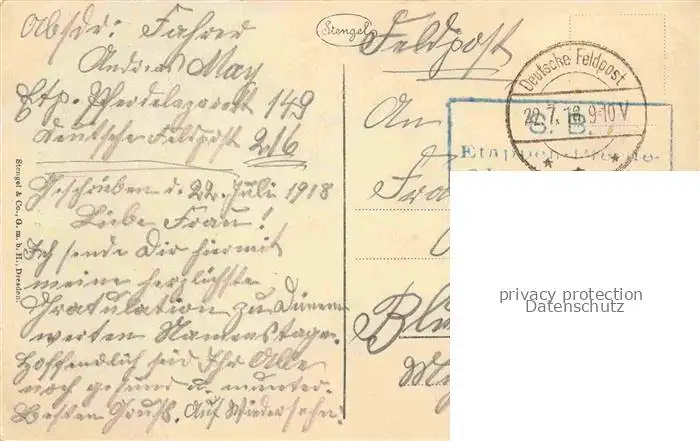 Absdr: Fahrer
Andreas May
Etp. Pferdelazarett 149
Deutsche Feldpost 216
Geschrieben d. 22. Juli 1918
Liebe Frau!
Ich sende Dir hiermit
meine herzlichste
Gratulation zu Deinem
werten Namenstage.
Hoffendlich seid Ihr Alle
noch gesund u. munter.
Besten Gruß. Auf Wiedersehn!
Stengel & Co., G. m. b. H., Dresden.
Stengel
Feldpost
Deutsche Feldpost
22.7.18 9-10 V
S. B.
Etappen-Pferde-
An
privacy protection
Datenschutz